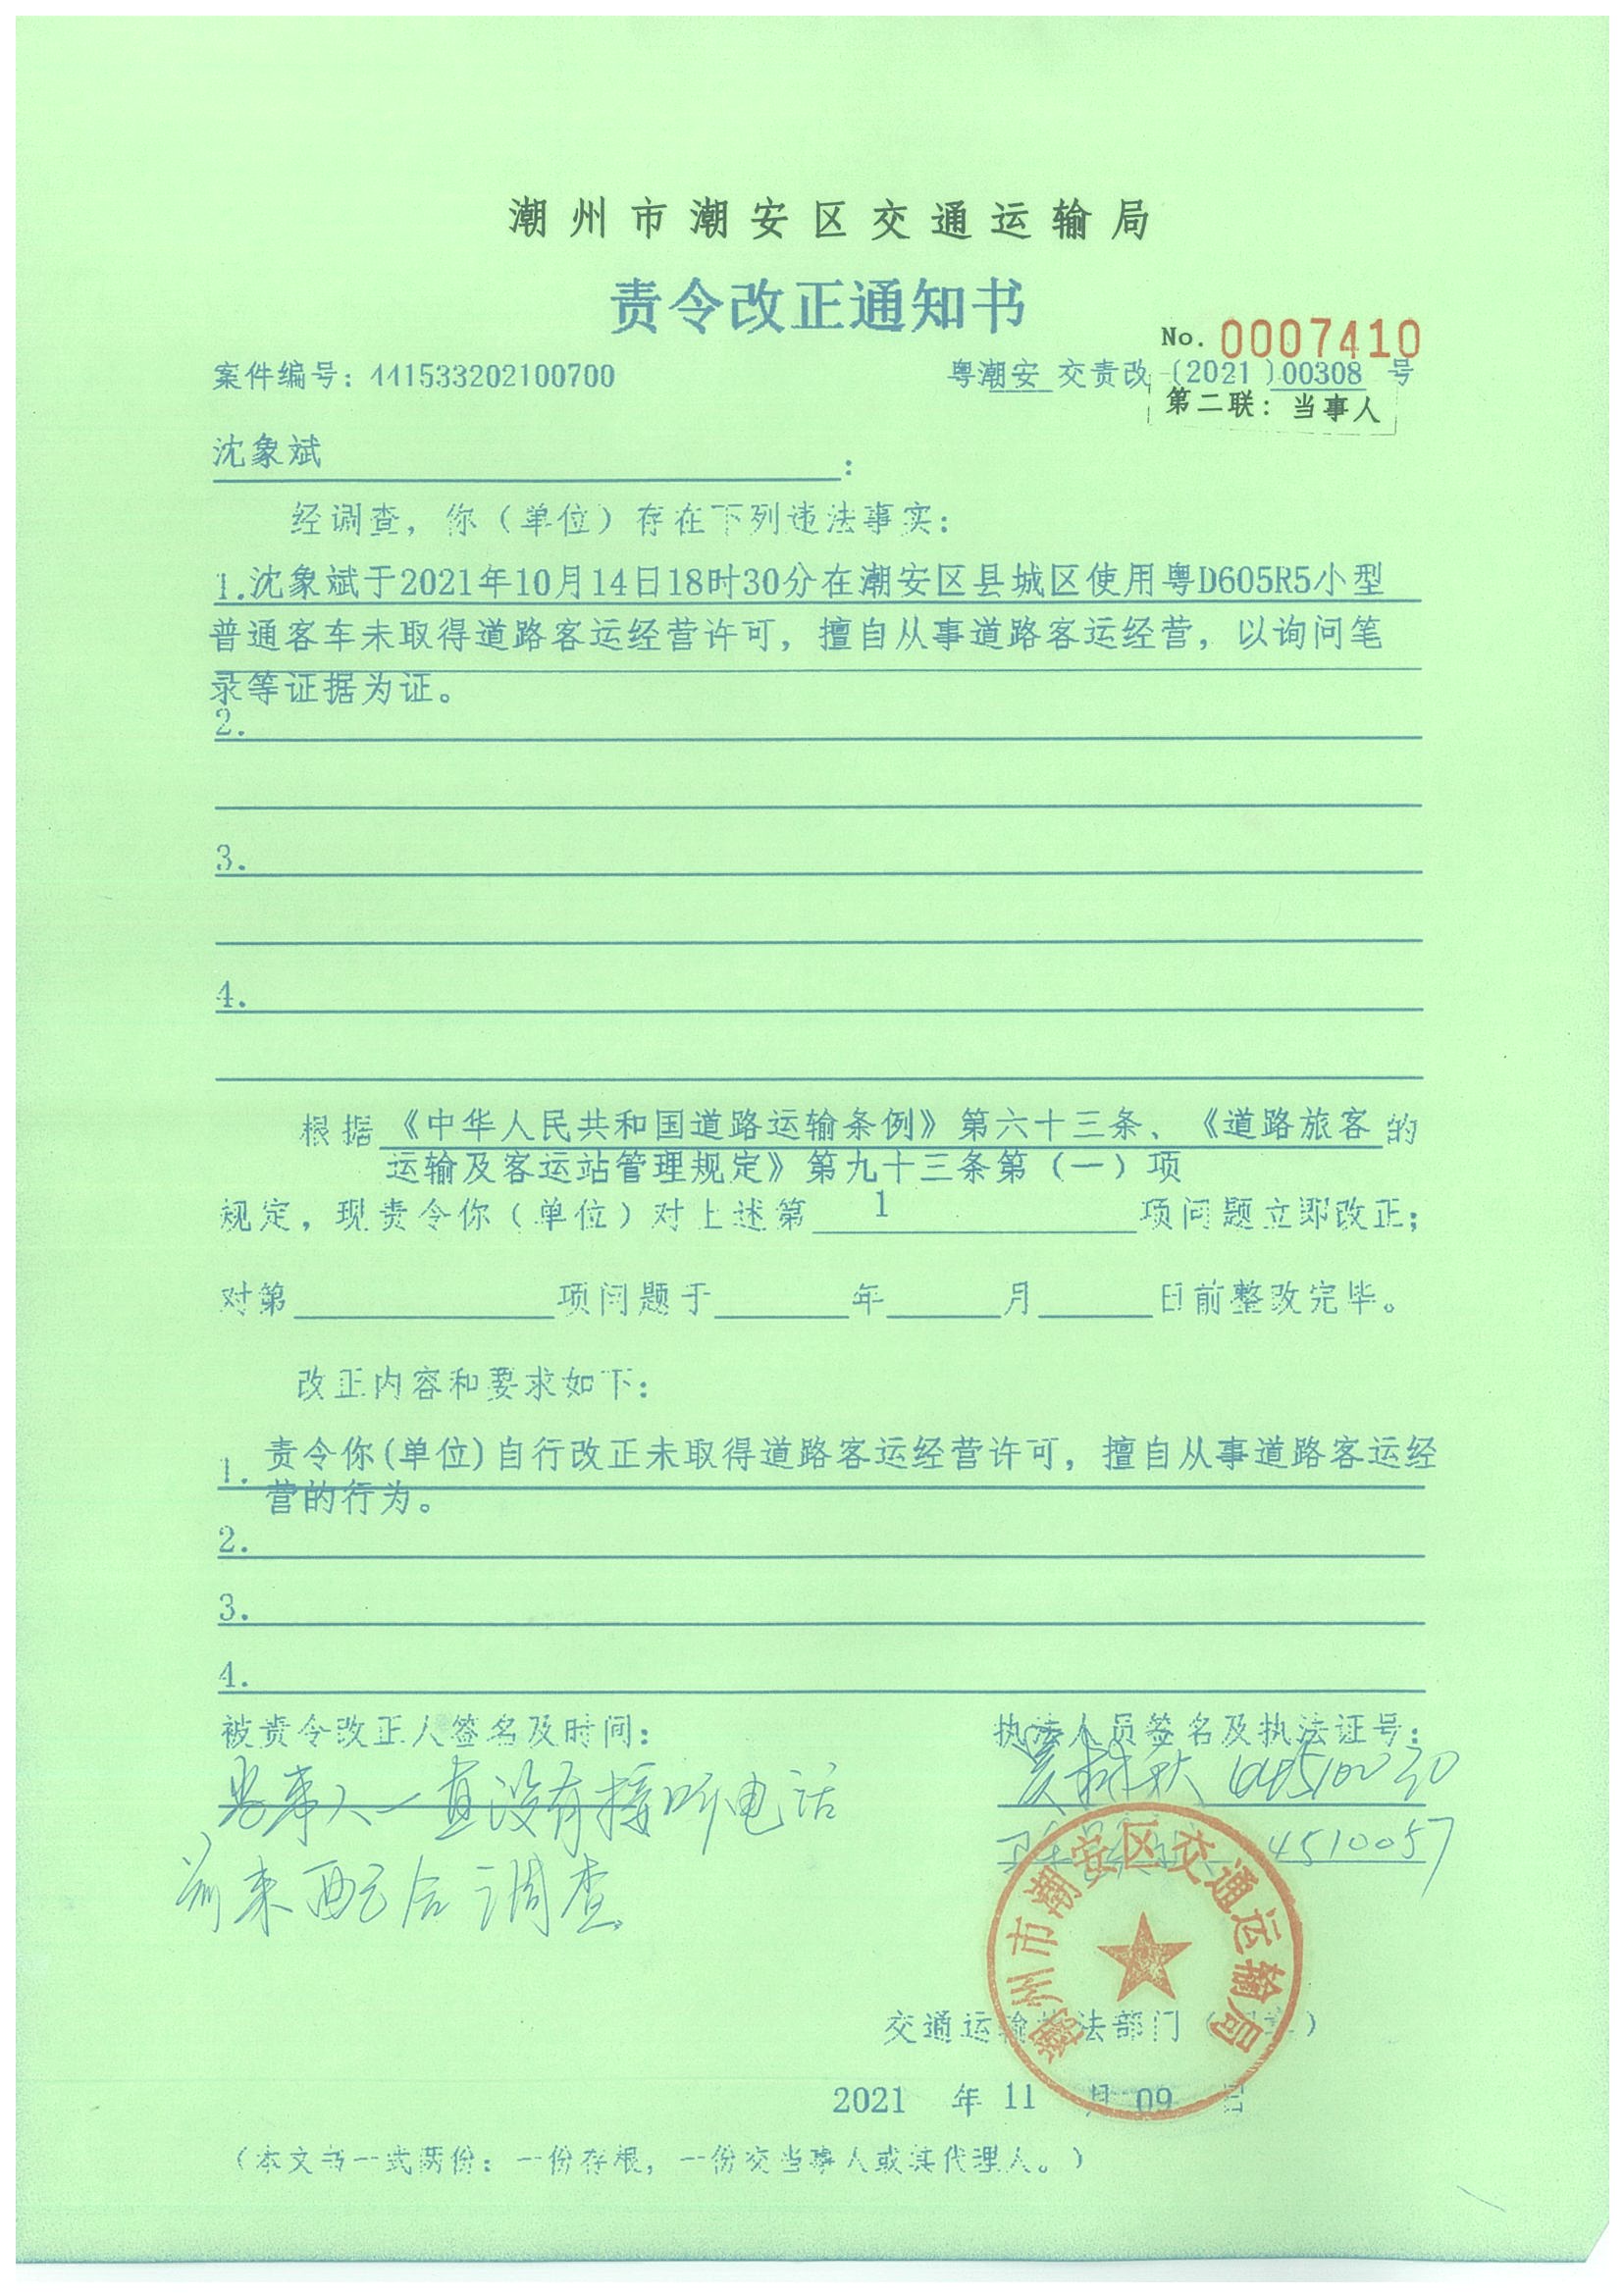 潮州市潮安区交通运输局
责令改正通知书
No. 0007410
案件编号：441533202100700
粤潮安 交责改〔2021〕00308 号
第二联：当事人
沈象斌：
经调查，你（单位）存在下列违法事实：
1.沈象斌于2021年10月14日18时30分在潮安区县城区使用粤D605R5小型
普通客车未取得道路客运经营许可，擅自从事道路客运经营，以询问笔
录等证据为证。
2.
3.
4.
根据《中华人民共和国道路运输条例》第六十三条、《道路旅客的
运输及客运站管理规定》第九十三条第（一）项
规定，现责令你（单位）对上述第 1 项问题立即改正；
对第 项问题于 年 月 日前整改完毕。
改正内容和要求如下：
1. 责令你(单位)自行改正未取得道路客运经营许可，擅自从事道路客运经
营的行为。
2.
3.
4.
被责令改正人签名及时间：
执法人员签名及执法证号：
当事人一直没有接听电话
前来配合调查
4510057
潮州市潮安区交通运输局
交通运输执法部门（ 章）
2021 年 11 月 09 日
（本文书一式两份：一份存根，一份交当事人或其代理人。）